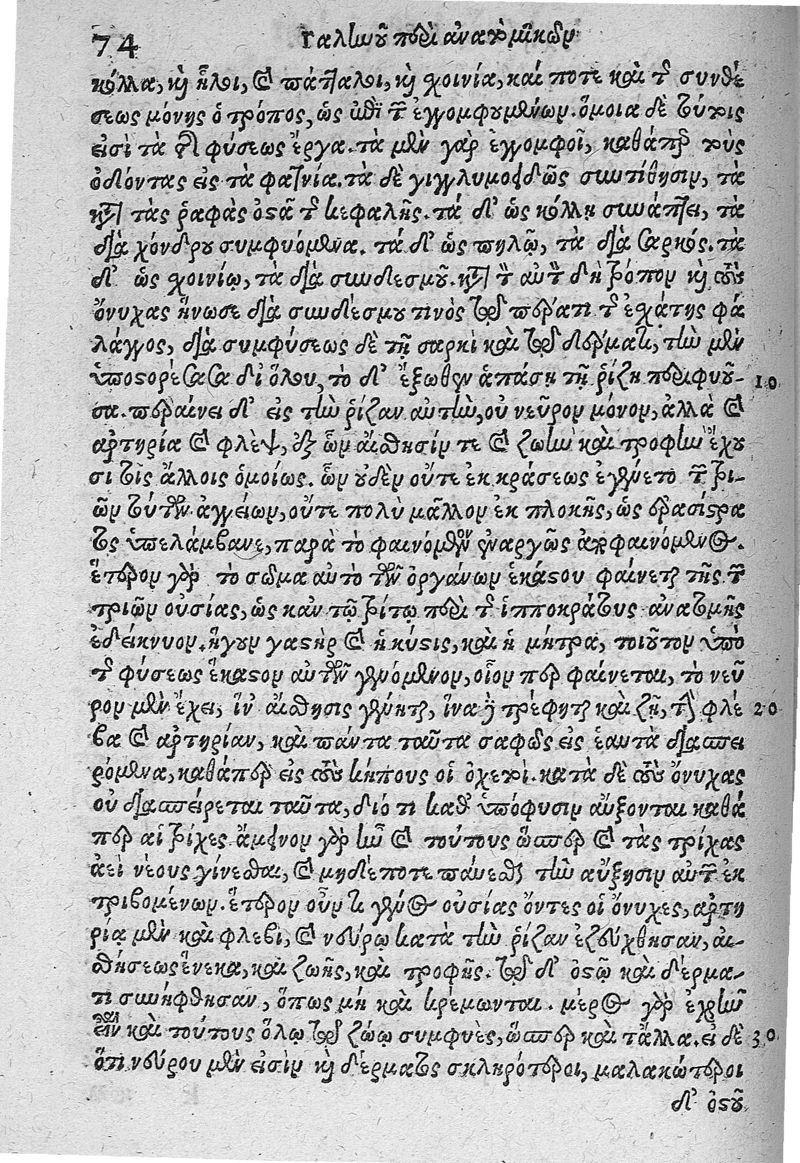 74 Γαλίνοῦ περὶ ἀνατομικῶν
κόλλα, καὶ ἧλοι, καὶ πάτταλοι, καὶ χοινία, καί ποτε καὶ τῆς συνθέ
σεως μόνης ὁ τρόπος, ὡς ἐπὶ τῶν ἐγγομφουμένων. ὅμοια δὲ τούτοις
εἰσὶ τὰ τῆς φύσεως ἔργα. τὰ μὲν γὰρ ἐγγομφοῖ, καθάπερ τοὺς
ὀδόντας εἰς τὰ φατνία. τὰ δὲ γιγγλυμοειδῶς συντίθησιν, τὰ
κατὰ τὰς ῥαφὰς ὀστᾶ τῆς κεφαλῆς. τὰ δ' ὡς κόλλῃ συνάπτει, τὰ
διὰ χόνδρου συμφυόμενα. τὰ δ' ὡς πηλῷ, τὰ διὰ σαρκός. τὰ
δ' ὡς χοινίῳ, τὰ διὰ συνδεσμοῦ. κατὰ τὸν αὐτὸν δὴ τρόπον καὶ τοὺς
ὄνυχας ἥνωσε διὰ συνδέσμου τινὸς τῷ πέρατι τῆς ἐσχάτης φά
λαγγος, διὰ συμφύσεως δὲ τῇ σαρκὶ καὶ τῷ δέρματι, τὴν μὲν
ὑποστορέσασα δι' ὅλου, τὸ δ' ἔξωθεν ἁπάσῃ τῇ ῥίζῃ περιφύου- 10
σα. περαίνει δ' εἰς τὴν ῥίζαν αὐτὴν, οὐ νεῦρον μόνον, ἀλλὰ καὶ
ἀρτηρία καὶ φλὲψ, ἐξ ὧν αἴσθησίν τε καὶ ζωὴν καὶ τροφὴν ἔχου
σι τοῖς ἄλλοις ὁμοίως. ὧν οὐδὲν οὔτε ἐκ κράσεως ἐγένετο τῶν τρι-
ῶν τούτων ἀγγείων, οὔτε πολὺ μᾶλλον ἐκ πλοκῆς, ὡς ἐρασίστρα
τος ὑπελάμβανε, παρὰ τὸ φαινόμενον ἐναργῶς ἀποφαινόμενος.
ἕτερον γὰρ τὸ σῶμα αὐτὸ τῶν ὀργάνων ἑκάστου φαίνεται τῆς τῶν
τριῶν οὐσίας, ὡς κἀν τῷ τρίτῳ περὶ τῆς ἱπποκράτους ἀνατομῆς
ἐδείκνυον. ἥγουν γαστὴρ καὶ ἡ κύστις, καὶ ἡ μήτρα, τοιοῦτον ὑπὸ
τῆς φύσεως ἕκαστον αὐτῶν γενόμενον, οἷον περ φαίνεται, τὸ νεῦ
ρον μὲν ἔχει, ἵν' αἴσθησις γένηται, ἵνα δὲ τρέφηται καὶ ζῇ, τὴν φλέ 20
βα καὶ ἀρτηρίαν, καὶ πάντα ταῦτα σαφῶς εἰς ἑαυτὰ διασπει
ρόμενα, καθάπερ εἰς τοὺς κήπους οἱ ὀχετοί. κατὰ δὲ τοὺς ὄνυχας
οὐ διασπείρεται ταῦτα, διότι καθ' ὑπόφυσιν αὔξονται καθά
περ αἱ τρίχες. ἄμεινον γὰρ ἦν καὶ τούτους ὥσπερ καὶ τὰς τρίχας
ἀεὶ νέους γίνεσθαι, καὶ μηδέποτε παύεσθαι τὴν αὔξησιν αὐτῶν ἐκ
τριβομένων. ἕτερον οὖν τι γένος οὐσίας ὄντες οἱ ὄνυχες, ἀρτη
ρίᾳ μὲν καὶ φλεβὶ, καὶ νεύρῳ κατὰ τὴν ῥίζαν ἐζεύχθησαν, αἰ-
σθήσεως ἕνεκα, καὶ ζωῆς, καὶ τροφῆς. τῷ δ' ὀστῷ καὶ δέρμα-
τι συνήφθησαν, ὅπως μὴ καὶ κρέμωνται. μέρος γὰρ ἐχρῆν
εἶναι καὶ τούτους ὅλῳ τῷ ζώῳ συμφυὲς, ὥσπερ καὶ τἄλλα. εἰ δὲ 30
ὅτι νεύρου μὲν εἰσὶν καὶ δέρματος σκληρότεροι, μαλακώτεροι
δ' ὀστοῦ